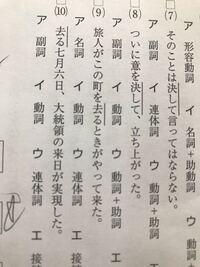 ア 形容動詞 イ 名詞+助動詞 ウ
(7) そのことは決して言ってはならない。
ア 副詞 イ 動詞 ウ 動詞+助詞
(8) ついに意を決して、立ち上がった。
ア 副詞 イ 連体詞 ウ 動詞+助詞
(9) 旅人がこの町を去るときがやって来た。
ア 名詞 イ 動詞 ウ 連体詞 エ
(10) 去る七月六日、大統領の来日が実現した。
ア 副詞 イ 動詞 ウ 連体詞 エ 接